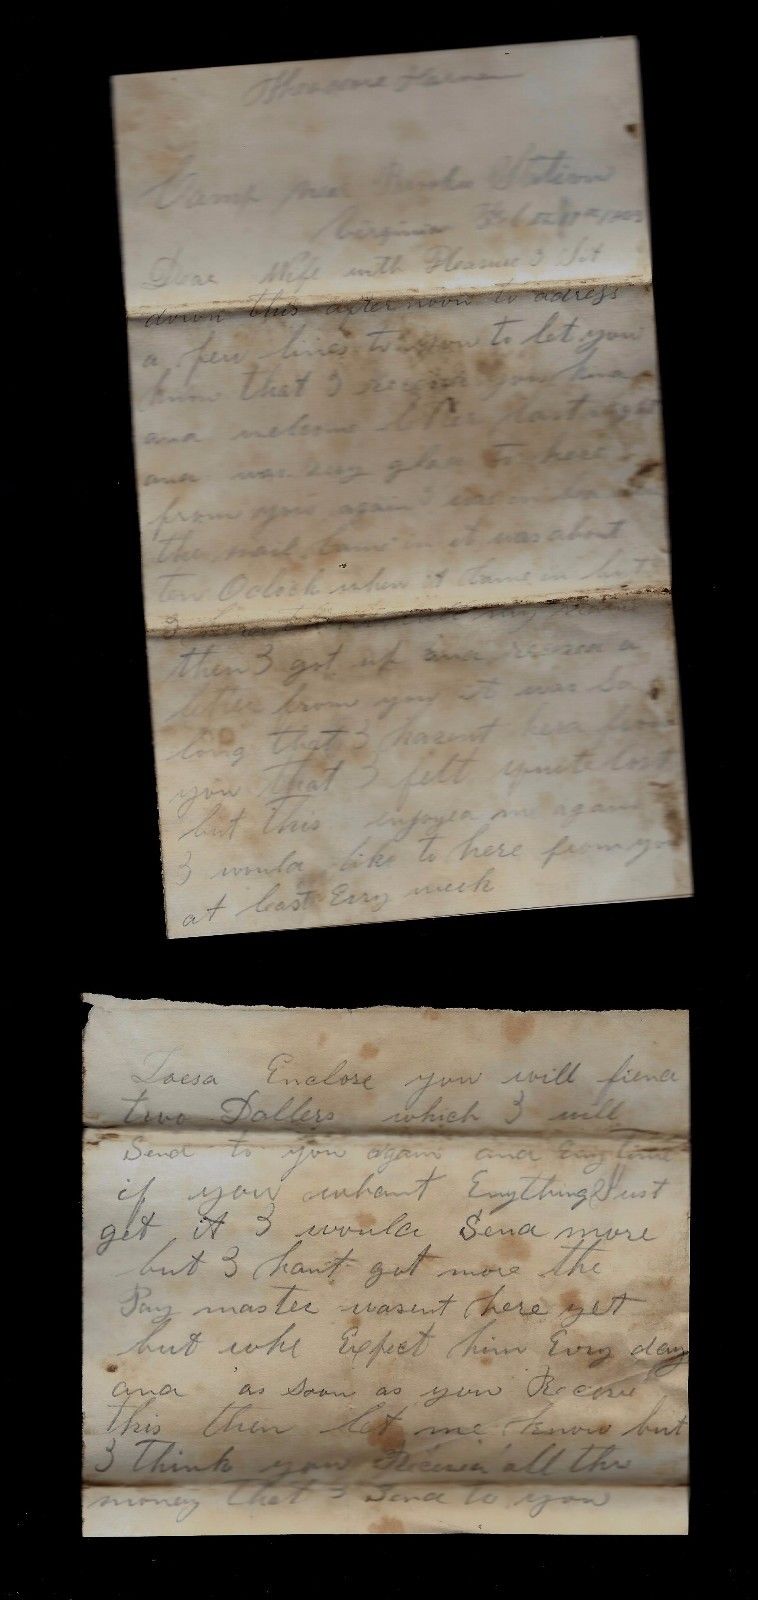 Theodore
Camp near Brooks Station
Virginia Feb
Dear Wife with Pleasure I Sit
down this afternoon to adress
a few lines to you to let you
know that I receive you kind
and welcome letter last night
and was very glad to here
from you again I was in bed when
the mail came in it was about
ten Oclock when it came in but
I my name
then I got up and receved a
letter from you it was so
long that I havent herd from
you that I felt quite lost
but this enjoyed me again
I would like to here from you
at least Evry week
Enclose you will fiend
two Dollers which I will
Send to you again and Eny time
if you whant Enything Just
get it I would Send more
but I hant got more the
Pay master wasent here yet
but whe Expect him Evry day
and as soon as you Receive
this then let me know but
I think you Receved all the
money that I Send to you